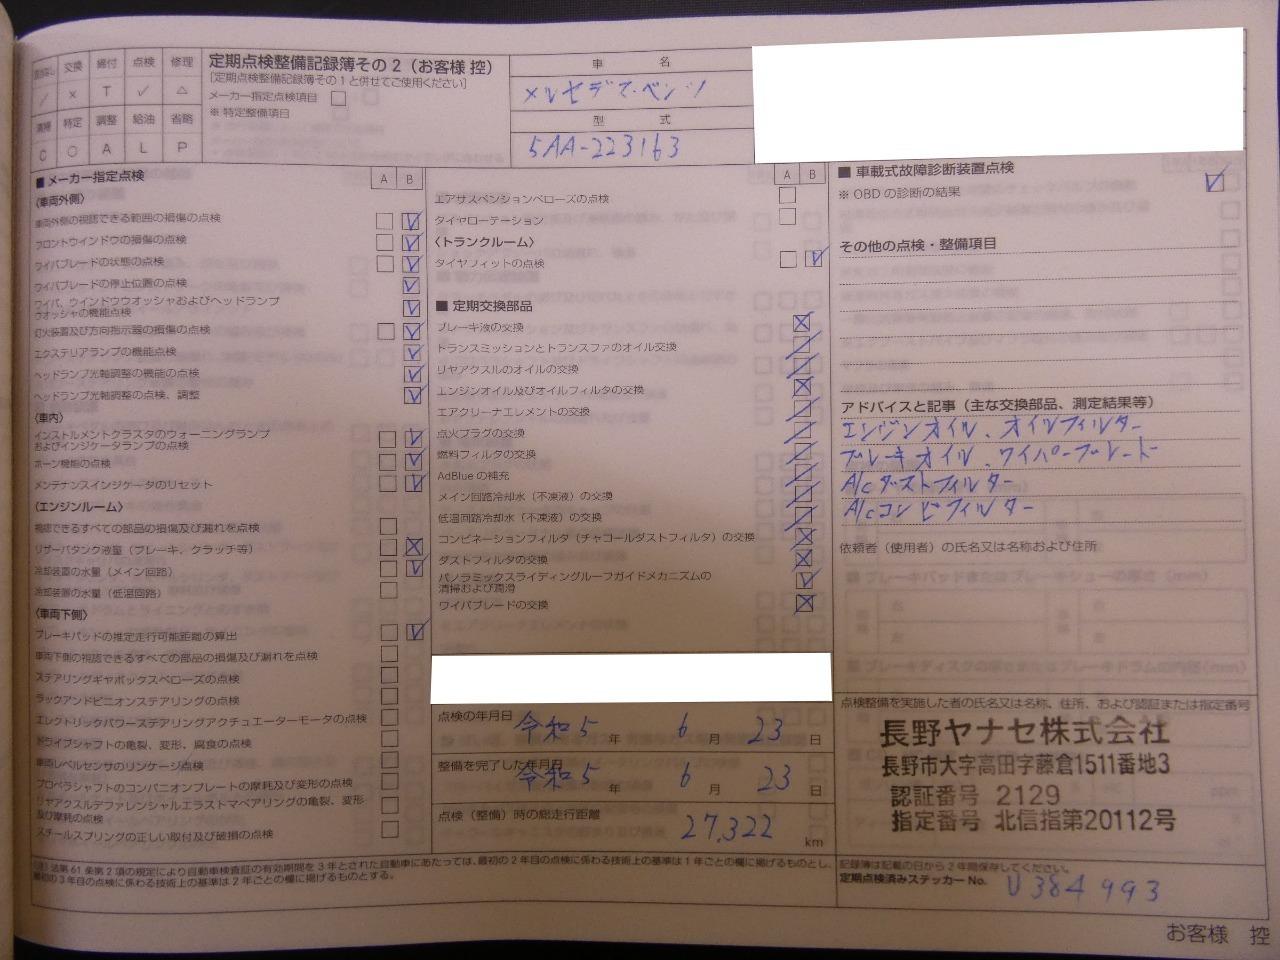 交換 締付 点検 修理
/ × T ✓ △
清掃 特定 調整 給油 省略
C ○ A L P
定期点検整備記録簿その2(お客様 控)
[定期点検整備記録簿その1と併せてご使用ください]
メーカー指定点検項目 □
※ 特定整備項目
車 名
メルセデス・ベンツ
型 式
5AA-223163
■ メーカー指定点検 A B
〈車両外側〉
車両外側の視認できる範囲の損傷の点検
フロントウインドウの損傷の点検
ワイパブレードの状態の点検
ワイパブレードの停止位置の点検
ワイパ、ウインドウオッシャおよびヘッドランプ
ウオッシャの機能点検
灯火装置及び方向指示器の損傷の点検
エクステリアランプの機能点検
ヘッドランプ光軸調整の機能の点検
ヘッドランプ光軸調整の点検、調整
〈車内〉
インストルメントクラスタのウォーニングランプ
およびインジケータランプの点検
ホーン機能の点検
メンテナンスインジケータのリセット
〈エンジンルーム〉
視認できるすべての部品の損傷及び漏れを点検
リザーバタンク液量(ブレーキ、クラッチ等)
冷却装置の水量(メイン回路)
冷却装置の水量(低温回路)
〈車両下側〉
ブレーキパッドの推定走行可能距離の算出
車両下側の視認できるすべての部品の損傷及び漏れを点検
ステアリングギヤボックスベローズの点検
ラックアンドピニオンステアリングの点検
エレクトリックパワーステアリングアクチュエーターモータの点検
ドライブシャフトの亀裂、変形、腐食の点検
車両レベルセンサのリンケージ点検
プロペラシャフトのコンパニオンプレートの摩耗及び変形の点検
リヤアクスルデファレンシャルエラストマベアリングの亀裂、変形
及び摩耗の点検
スチールスプリングの正しい取付及び破損の点検
A B
エアサスペンションベローズの点検
タイヤローテーション
〈トランクルーム〉
タイヤフィットの点検
■ 定期交換部品
ブレーキ液の交換
トランスミッションとトランスファのオイル交換
リヤアクスルのオイルの交換
エンジンオイル及びオイルフィルタの交換
エアクリーナエレメントの交換
点火プラグの交換
燃料フィルタの交換
AdBlueの補充
メイン回路冷却水(不凍液)の交換
低温回路冷却水(不凍液)の交換
コンビネーションフィルタ(チャコールダストフィルタ)の交換
ダストフィルタの交換
パノラミックスライディングルーフガイドメカニズムの
清掃および潤滑
ワイパブレードの交換
点検の年月日
令和5 年 6 月 23 日
整備を完了した年月日
令和5 年 6 月 23 日
点検(整備)時の総走行距離
27,322 km
■ 車載式故障診断装置点検
※ OBDの診断の結果
その他の点検・整備項目
アドバイスと記事(主な交換部品、測定結果等)
エンジンオイル、オイルフィルター
ブレーキオイル、ワイパーブレード
A/Cダストフィルター
A/Cコンビフィルター
依頼者(使用者)の氏名又は名称および住所
点検整備を実施した者の氏名又は名称、住所、および認証または指定番号
長野ヤナセ株式会社
長野市大字高田字藤倉1511番地3
認証番号 2129
指定番号 北信指第20112号
(注)法第61条第2項の規定により自動車検査証の有効期間を3年とされた自動車にあたっては、最初の2年目の点検に係わる技術上の基準は1年ごとの欄に掲げるものとし、
最初の3年目の点検に係わる技術上の基準は2年ごとの欄に掲げるものとする。
記録簿は記載の日から2年間保存してください。
定期点検済みステッカーNo. U384993
お客様 控